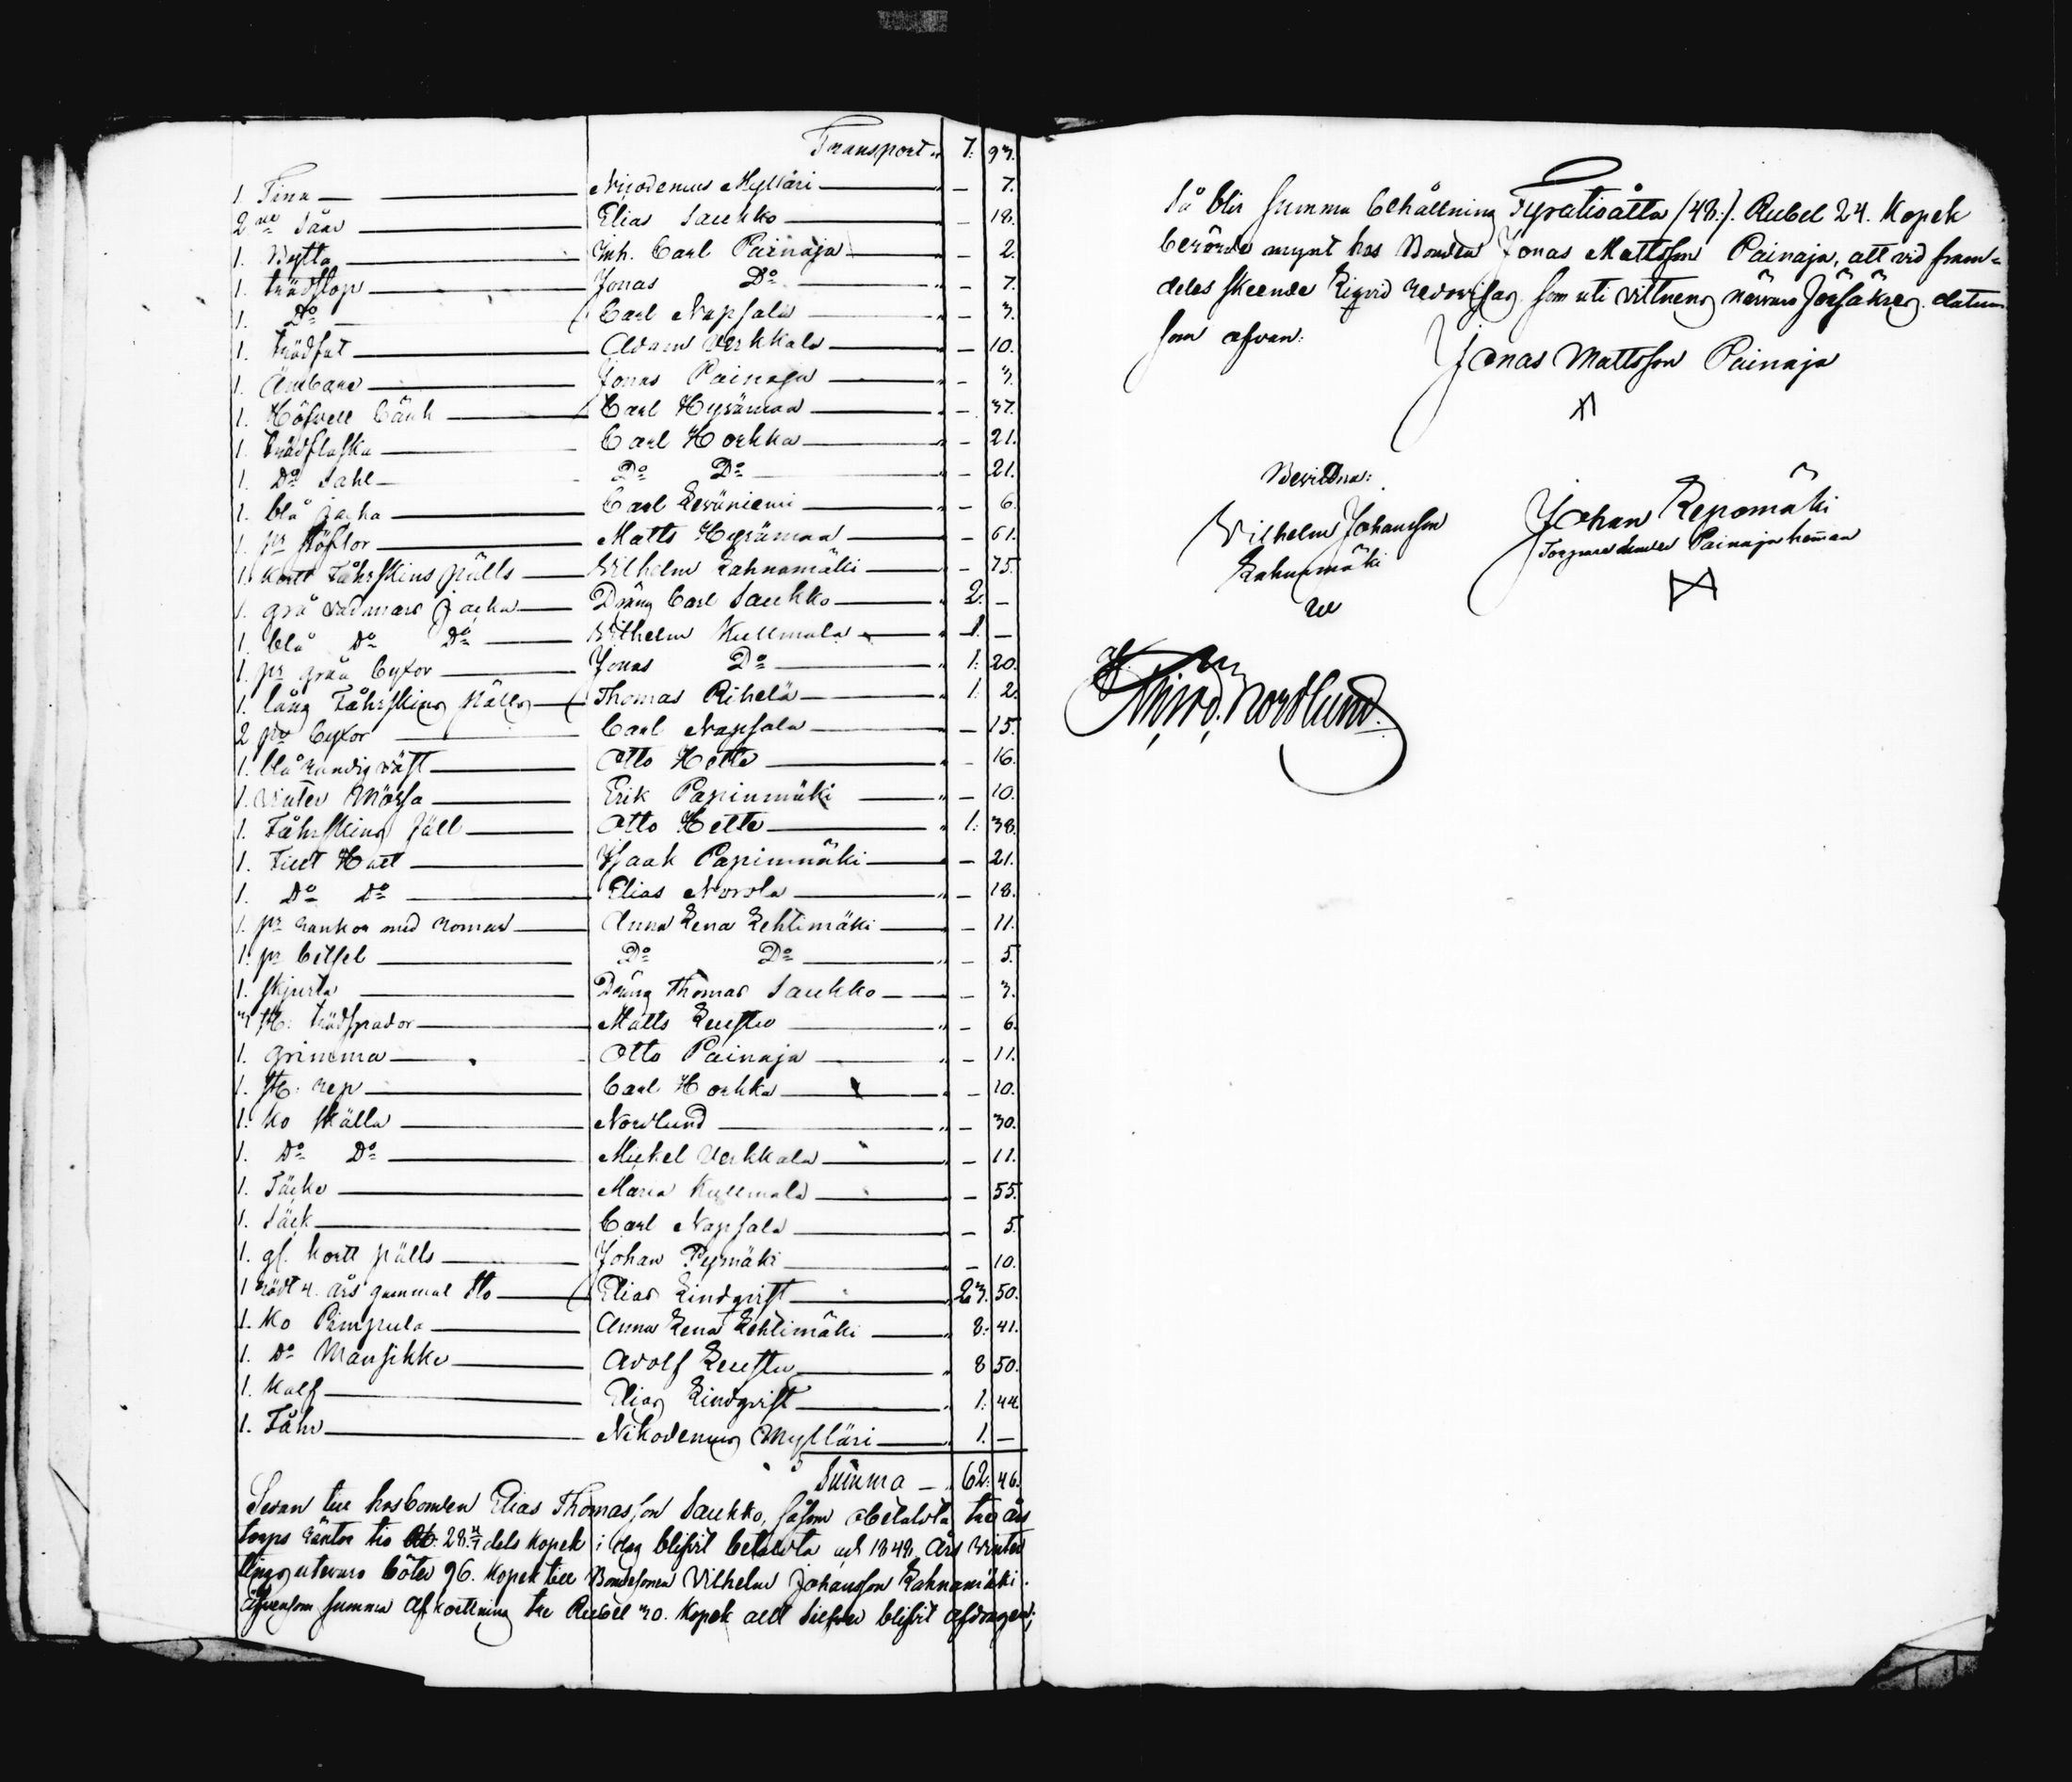 Transport " 7: 93.
1. Tina — Nicodemus Mylläri — " — 7.
2ne Såar — Elias Saukko — " — 18.
1. Bytta — Inh. Carl Painaja — " — 2.
1. trädstop — Jonas Do — " — 7.
1. Do — Carl Napsala — " — 3.
1. trädfat — Adam Verkkala — " — 10.
1. Ämbare — Jonas Painaja — " — 3.
1. Höfvell bänk — Carl Hyrämaa — " — 37.
1. trädflaska — Carl Horkka — " — 21.
1. Do Sahl — Do Do — " — 21.
1. blå jacka — Carl Leväniemi — " — 6.
1. pr Stöflor — Matts Hyrämaa — " — 61.
1. kort Fåhrskins pälls — Wilhelm Kahnamäki — " — 75.
1. grå vadmars jacka — Dräng Carl Saukko — " 2. —
1. blå Do Do — Wilhelm Kullmala — " 1. —
1. pr gråa byxor — Jonas Do — " 1: 20.
1. lång Fåhrskins pälls — Thomas Rihelä — " 1: 2.
2 pr byxor — Carl Napsala — " — 15.
1. blårandig väst — Otto Hette — " — 16.
1. vinter Mössa — Erik Papinmäki — " — 10.
1. Fåhrskins fäll — Otto Hette — " 1: 38.
1. Filt Hatt — Isaak Papinmäki — " — 21.
1. Do Do — Elias Norola — " — 18.
1. pr rankor med romar — Anna Lena Lehtimäki — " — 11.
1. pr betsel — Do Do — " — 5.
1. skjorta — Dräng Thomas Saukko — " — 3.
3 st: trädspador — Matts Luustu — " — 6.
1. grimma — Otto Painaja — " — 11.
1. st: rep — Carl Horkka — " — 10.
1. ko skälla — Nordlund — " — 30.
1. Do Do — Mickel Verkkala — " — 11.
1. Täcke — Maria Kullmala — " — 55.
1. Säck — Carl Napsala — " — 5.
1. gl. kort pälls — Johan Pyrmäki — " — 10.
1 rödt 4. års gammal sto — Elias Lindqvist — " 23. 50.
1. Ko Pimpula — Anna Lena Lehtimäki — " 8: 41.
1. Do Mansikki — Adolf Luustu — " 8 50.
1. Kalf — Elias Lindqvist — " 1: 44.
1. Fåhr — Nikodemus Mylläri — " 1. —
Summa — " 62: 46.
Sedan till husbonden Elias Thomasson Saukko, såsom obetalda tre års
torps räntor tio Rb: 28 4/7 dels kopek i dag blifvit betalda och 1848. års vinter
tings utevaro böter 96. kopek till Bondesonen Vilhelm Johansson Kahnamäki.
äfvensom summa afkortning tre Rubel 30. kopek allt Silfver blifvit afdragen;
Så blir Summa behållning Fyratioåtta /48./. Rubel 24. Kopek
berörde mynt hos Bonden Jonas Mattsson Painaja, att vid fram-
deles skeende Liqvid redovisas som uti vittnens närvaro försäkras. datum
som ofvan:
Jonas Mattsson Painaja
Bevittna:
Vilhelm Johansson
Kahnamäki
Johan Repomäki
Torpare under Painaja heman
Nordlund.